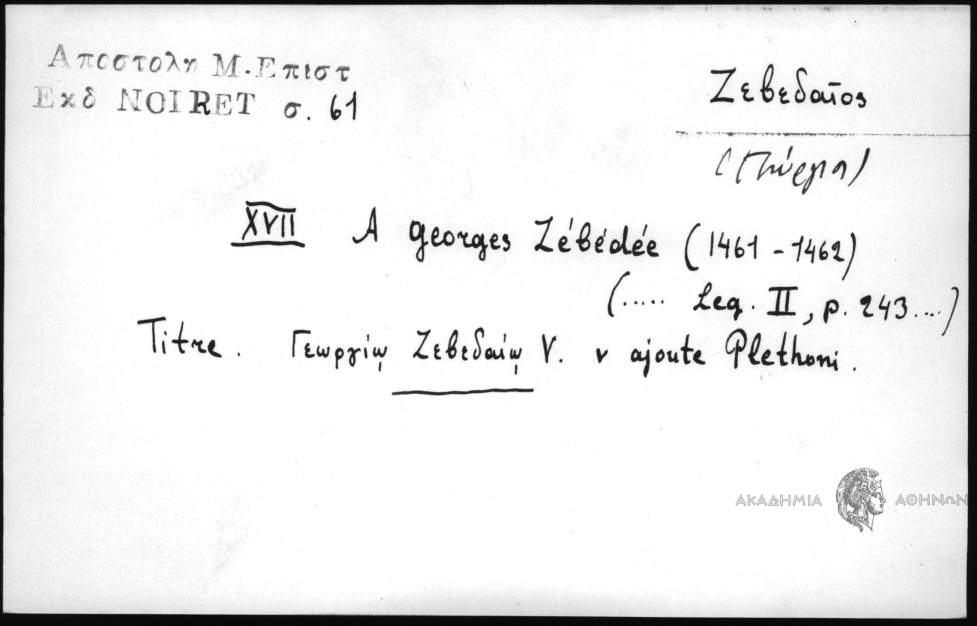 Αποστολη Μ. Επιστ
Εκδ NOIRET σ. 61
Ζεβεδαῖος
XVII A Georges Zébédée (1461-1462)
(..... Leg. II, p. 243...)
Titre. Γεωργίῳ Ζεβεδαίῳ V. v ajoute Plethoni.
ΑΚΑΔΗΜΙΑ ΑΘΗΝΩΝ